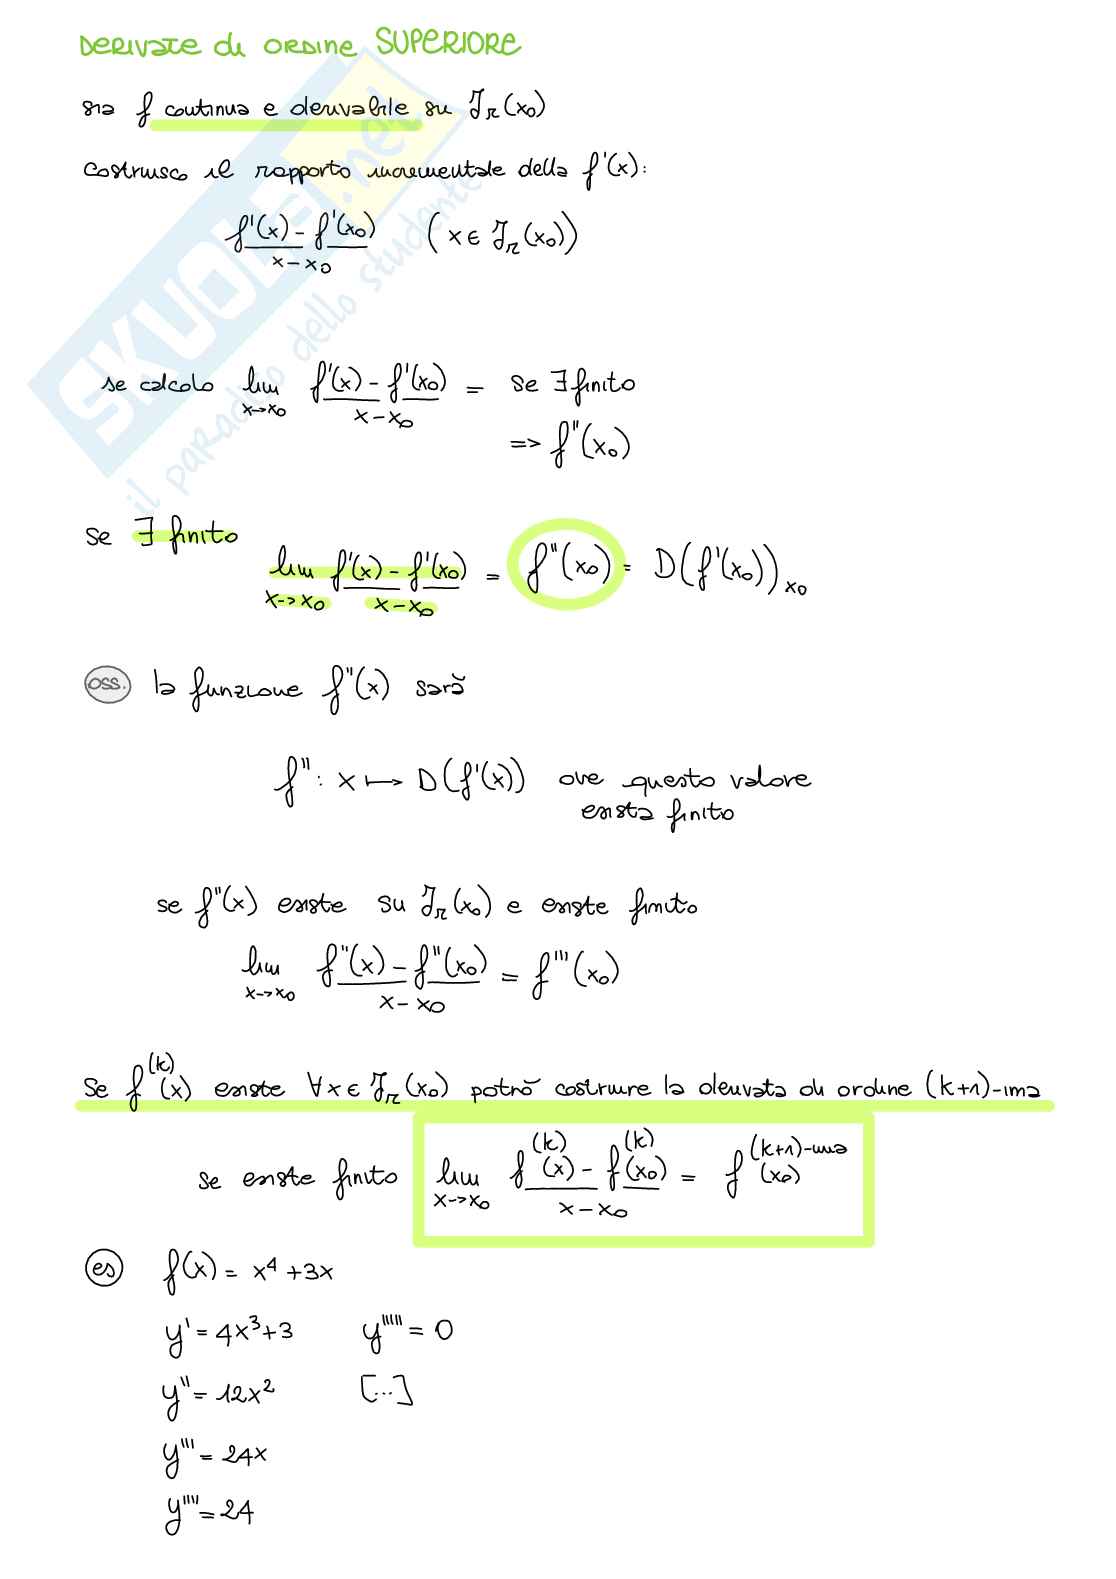 DERIVATE di ORDINE SUPERIORE
sia f continua e derivabile su ℐr(x0)
costruisco il rapporto incrementale della f'(x):
f'(x) - f'(x0) / x - x0 (x ∈ ℐr(x0))
se calcolo lim x→x0 f'(x) - f'(x0) / x - x0 = se ∃ finito
=> f''(x0)
se ∃ finito
lim x→x0 f'(x) - f'(x0) / x - x0 = f''(x0) = D(f'(x0))x0
oss. la funzione f''(x) sarà
f'': x ⟼ D(f'(x)) ove questo valore
esista finito
se f''(x) esiste su ℐr(x0) e esiste finito
lim x→x0 f''(x) - f''(x0) / x - x0 = f'''(x0)
se f^(k)(x) esiste ∀x ∈ ℐr(x0) potrò costruire la derivata di ordine (k+1)-ima
se esiste finito lim x→x0 f^(k)(x) - f^(k)(x0) / x - x0 = f^(k+1)-ima(x0)
es f(x) = x⁴ + 3x
y' = 4x³ + 3 y''''' = 0
y'' = 12x² [...]
y''' = 24x
y'''' = 24
SKUOLA.net
il paradiso dello studente